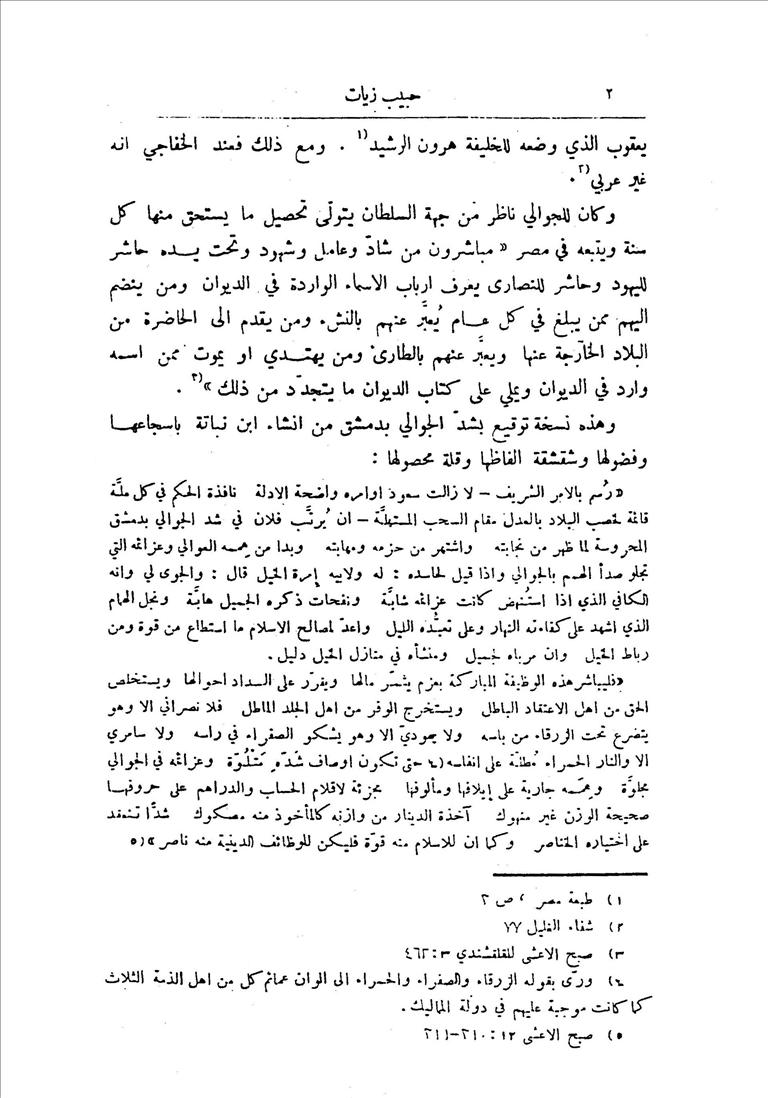 ٢
حبيب زيات
يعقوب الذي وضعه للخليفة هرون الرشيد(١ . ومع ذلك فعند الخفاجي انه
غير عربي(٢.
وكان للجوالي ناظر من جهة السلطان يتولّى تحصيل ما يستحق منها كل
سنة ويتبعه في مصر « مباشرون من شادّ وعامل وشهود وتحت يده حاشر
لليهود وحاشر للنصارى يعرف ارباب الاسماء الواردة في الديوان ومن ينضم
اليهم ممن يبلغ في كل عام يُعبَّر عنهم بالنشء ومن يقدم الى الحاضرة من
البلاد الخارجة عنها ويعبَّر عنهم بالطارئ ومن يهتدي او يموت ممن اسمه
وارد في الديوان ويملي على كتاب الديوان ما يتجدّد من ذلك »(٣ .
وهذه نسخة توقيع بشدّ الجوالي بدمشق من انشاء ابن نباتة باسجاعها
وفضولها وشقشقة الفاظها وقلة محصولها :
«رُسم بالامر الشريف – لا زالت سعود اوامره واضحة الادلة نافذة الحكم في كل ملَّة
قائمة لخصب البلاد بالعدل مقام السحب المستهلَّة – ان يُرتَّب فلان في شد الجوالي بدمشق
المحروسة لما ظهر من نجابته واشتهر من حزمه ومهابته وبدا من هممه العوالي وعزائمه التي
تجلو صدأ الهمم بالجوالي واذا قيل لحاسده : له ولابيه إمرة الخيل قال : والجوى لي وانه
الكافي الذي اذا استُنهض كانت عزائمه شابَّة ونفحات ذكره الجميل هابَّة ونجل الهمام
الذي اشهد على كفاءته النهار وعلى تعبُّده الليل واعدّ لمصالح الاسلام ما استطاع من قوة ومن
رباط الخيل وان مرباه لجميل ومنشأه في منازل الخيل دليل .
«فليباشر هذه الوظيفة المباركة بعزم يثمّر مالها ويقرّر على السداد احوالها ويستخلص
الحق من اهل الاعتقاد الباطل ويستخرج الوفر من اهل الجلد الماطل فلا نصراني الا وهو
يتضرع تحت الزرقاء من باسه ولا يهوديّ الا وهو يشكو الصفراء في راسه ولا سامري
الا والنار الحمراء مُطلَّة على انفاسه(٤ حتى تكون اوصاف شَدّه مَتْلُوّة وعزائمه في الجوالي
مجلوَّة وهممه جارية على إيلافها ومألوفها مجزئة لاقلام الحساب والدراهم على حروفها
صحيحة الوزن غير منهوك آخذة الدينار من وازنه كالمأخوذ منه مصكوك شدًّا تنعقد
على اختياره الخناصر وكما ان للاسلام منه قوّة فليكن للوظائف الدينية منه ناصر »(٥
١) طبعة مصر ، ص ٢
٢) شفاء الغليل ٧٧
٣) صبح الاعشى للقلقشندي ٣ : ٤٦٢
٤) ورّى بقوله الزرقاء والصفراء والحمراء الى الوان عمائم كل من اهل الذمة الثلاث
كما كانت موجبة عليهم في دولة المماليك .
٥) صبح الاعشى ١٢ : ٢١٠–٢١١